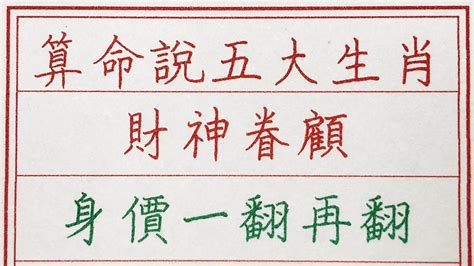 算命說五大生肖
財神眷顧
身價一翻再翻